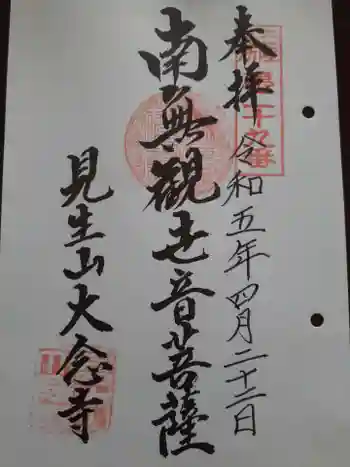 奉拝
令和五年四月二十二日
南無観世音菩薩
見生山大念寺